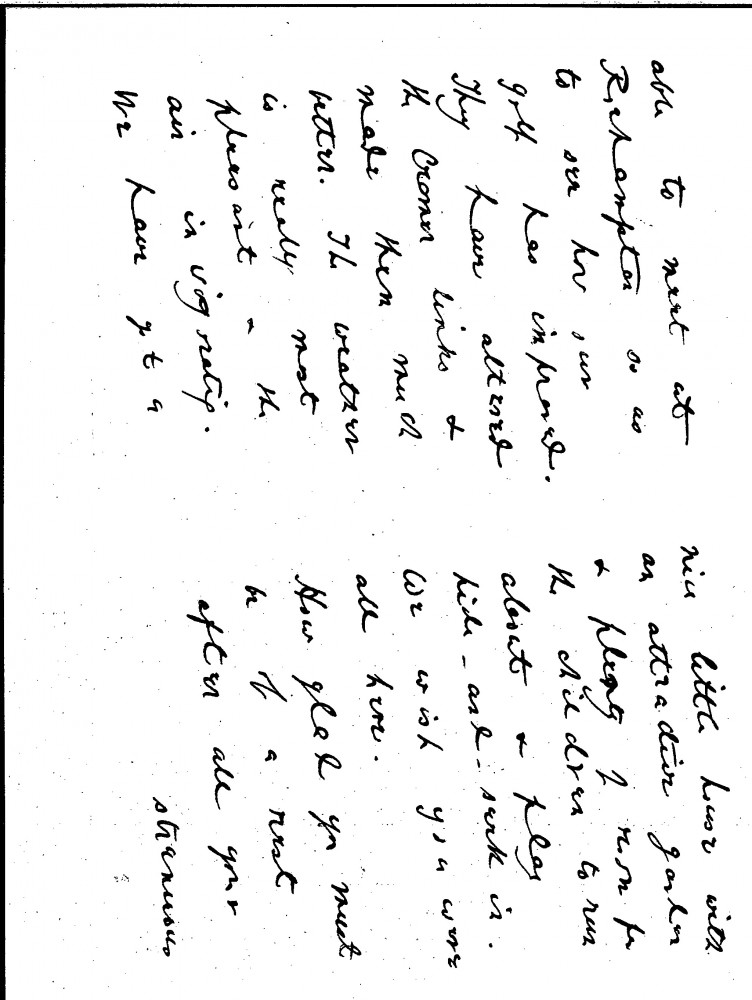 able to meet at
Roehampton so as
to see how our
golf has improved.
They have altered
the Cromer links &
made them much
better. The weather
is really most
pleasant & the
air invigorating.
We have got a
nice little house with
an attractive garden
& plenty of room for
the children to run
about & play
hide-and-seek in.
We wish you were
all here.
How glad you must
be of a rest
after all your
strenuous